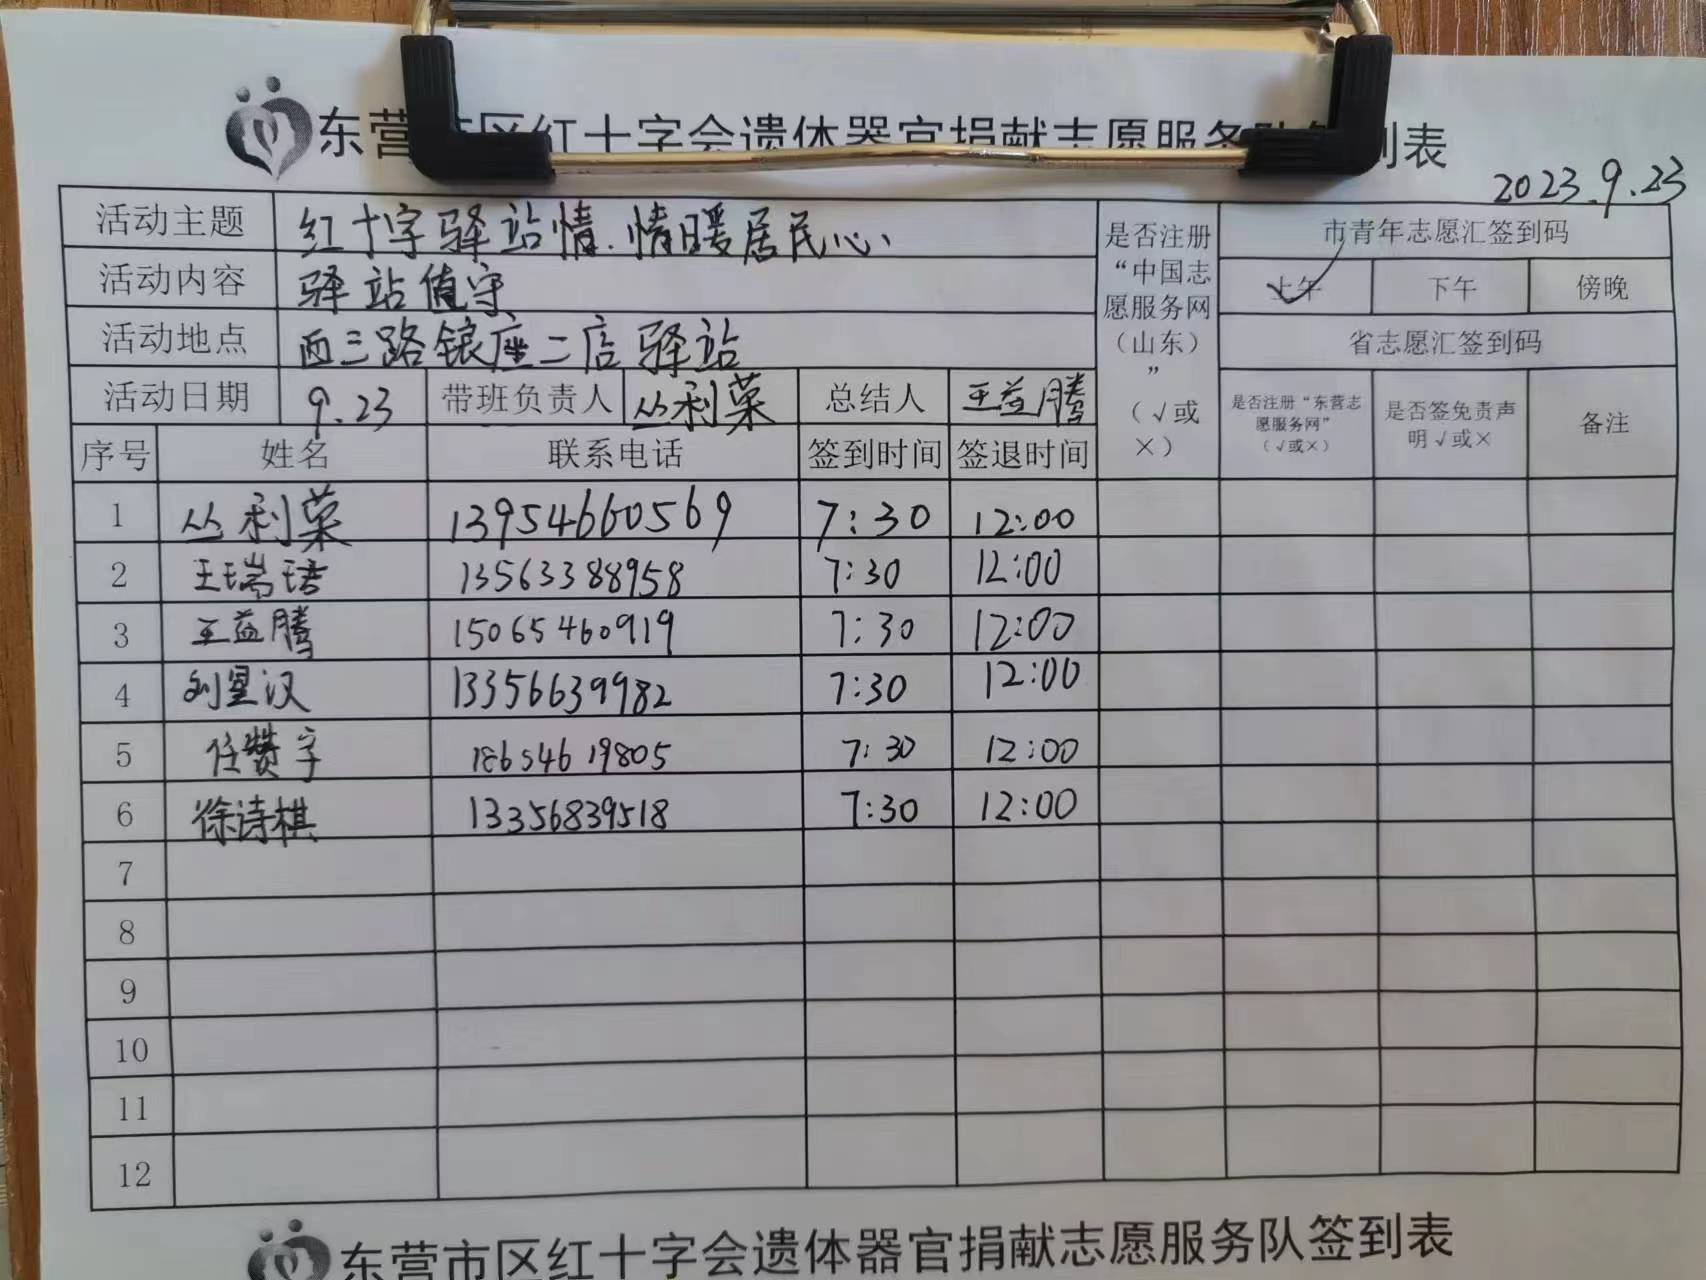 东营市区红十字会遗体器官捐献志愿服务队签到表
2023.9.23
活动主题 红十字驿站情.情暖居民心
活动内容 驿站值守
活动地点 西三路银座二店驿站
活动日期 9.23 带班负责人 丛利荣 总结人 王益腾
是否注册“中国志愿服务网（山东）”（√或×）
市青年志愿汇签到码
上午 下午 傍晚
省志愿汇签到码
是否注册“东营志愿服务网”（√或×） 是否签免责声明√或× 备注
序号 姓名 联系电话 签到时间 签退时间
1 丛利荣 13954660569 7:30 12:00
2 王瑞 13563388958 7:30 12:00
3 王益腾 15065460919 7:30 12:00
4 刘星汉 13356639982 7:30 12:00
5 任赞宇 18654619805 7:30 12:00
6 徐诗棋 13356839518 7:30 12:00
7
8
9
10
11
12
东营市区红十字会遗体器官捐献志愿服务队签到表